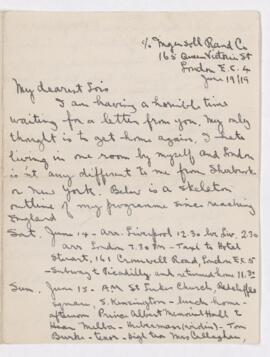 c/o Ingersoll Rand Co
165 Queen Victoria St
London E.C. 4
June 19/19
My dearest Lois
I am having a horrible time
waiting for a letter from you. My only
thought is to get home again. I hate
living in one room by myself and London
is n't any different to me from Sherbrook
or New York. Below is a skeleton
outline of my programme since reaching
England
Sat. June 14 - arr. Liverpool 12.30 lv. Liv. 2.30
arr London 7.30 PM - Taxi to Hotel
Stuart, 161 Cromwell Road, London
- Subway to Picadilly and returned home 11.30
Sun. June 15 - A.M St Lukes Church, Redcliffe
Square, S. Kensington - lunch home -
afternoon Prince Albert Memorial Hall to
Hear Melba - Huberman (violin) - Tom
Burke - tenor - Mrs Callaghan,